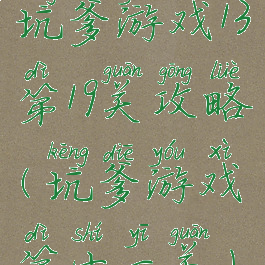 坑爹游戏13
dì guān gōng lüè
第19关攻略
kēng diē yóu xì
(坑爹游戏
dì shí yī guān
第十一关)